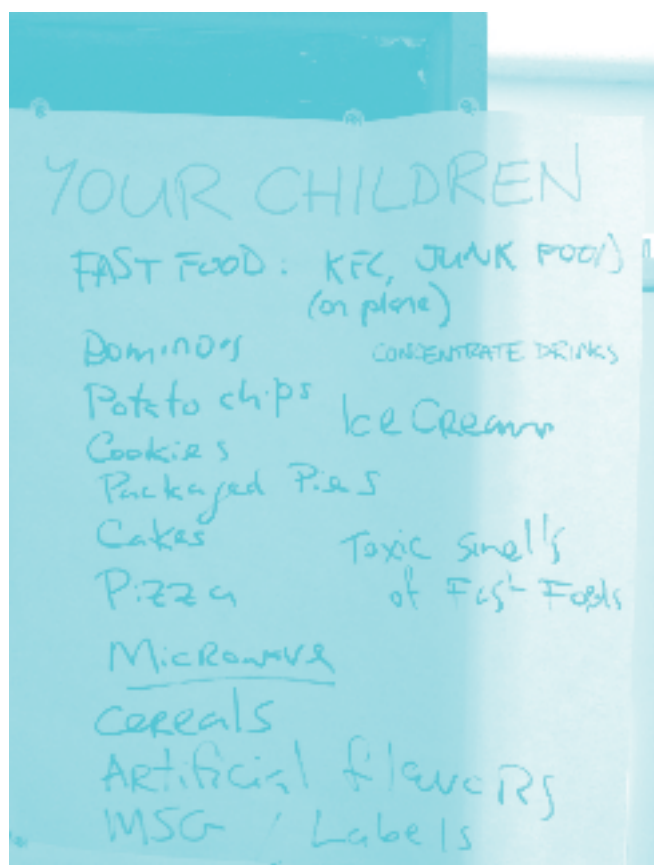 YOUR CHILDREN
FAST FOOD: KFC, JUNK FOOD
(on plane)
Domino's
CONCENTRATE DRINKS
Potato chips
Ice Cream
Cookies
Packaged Pies
Cakes
Toxic Smells
Pizza
of Fast Foods
Microwave
Cereals
Artificial flavors
MSG / Labels